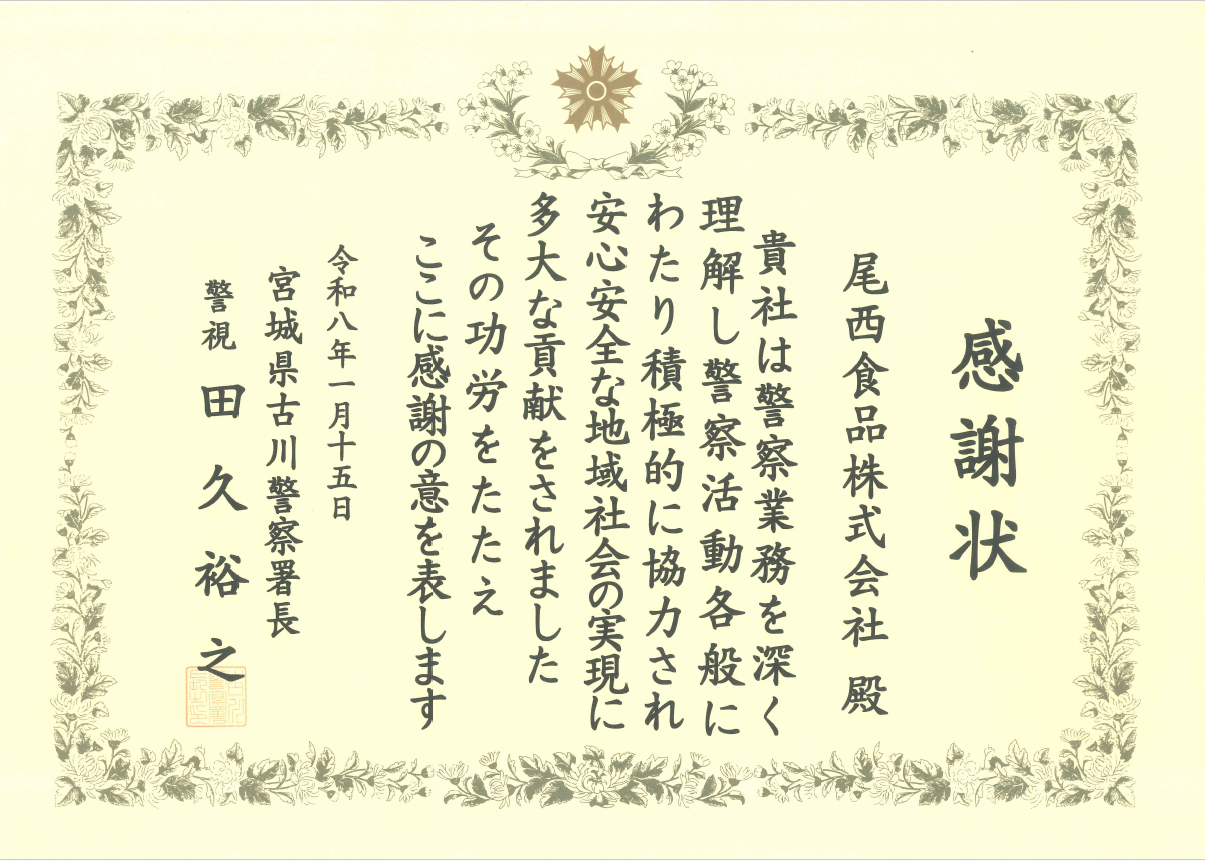 感謝状
尾西食品株式会社 殿
貴社は警察業務を深く
理解し警察活動各般に
わたり積極的に協力され
安心安全な地域社会の実現に
多大な貢献をされました
その功労をたたえ
ここに感謝の意を表します
令和八年一月十五日
宮城県古川警察署長
警視 田久裕之